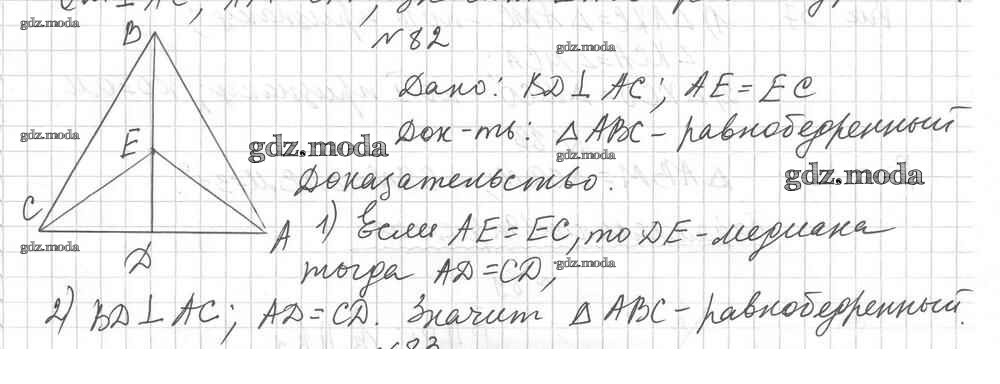 gdz.moda
№82
gdz.moda
B
Дано: BD⊥AC; AE=EC
gdz.moda
E
gdz.moda
Док-ть: △ABC-равнобедренный
gdz.moda
gdz.moda
Доказательство.
C
D
A
gdz.moda
1) Если AE=EC, то DE-медиана
тогда AD=CD;
gdz.moda
2) BD⊥AC; AD=CD. Значит △ABC-равнобедренный.
№83